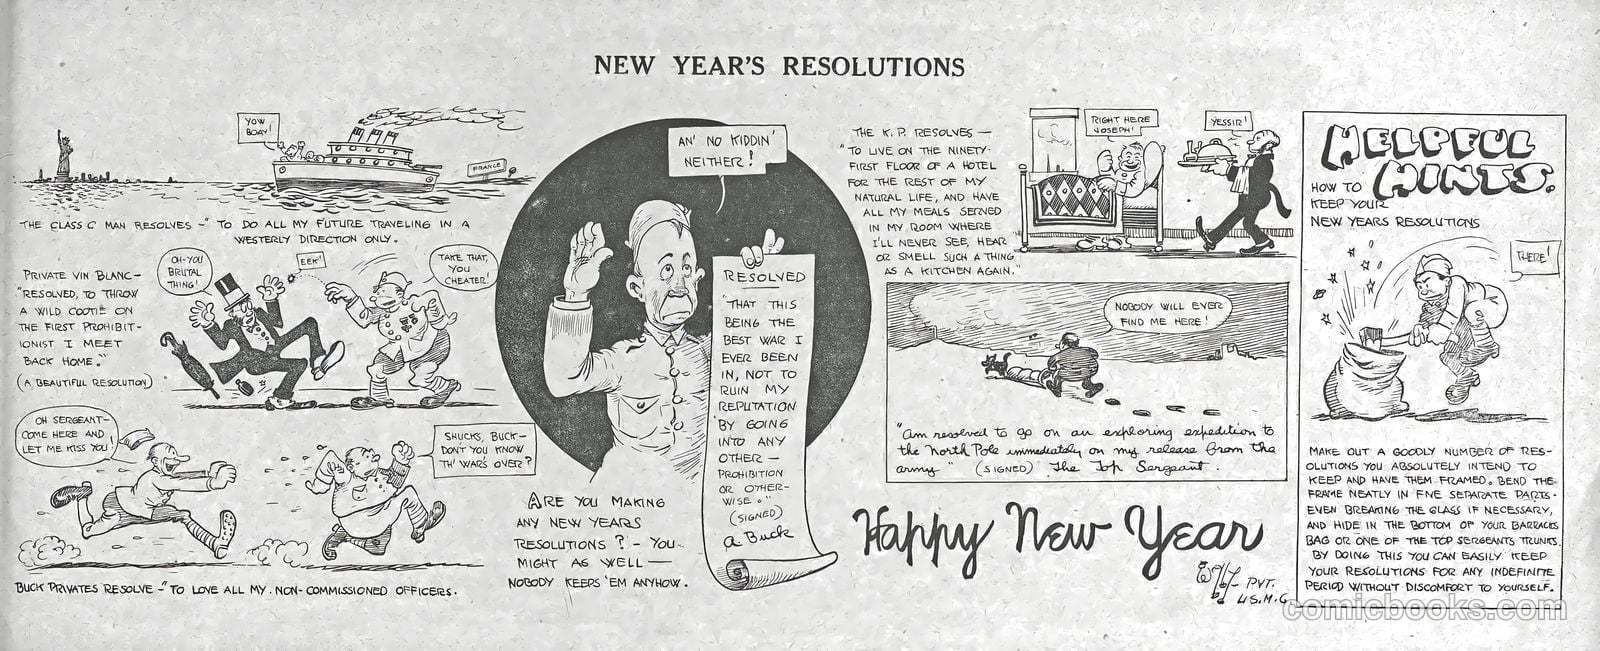 NEW YEAR'S RESOLUTIONS
YOW
BOAY!
FRANCE
THE CLASS C MAN RESOLVES - "TO DO ALL MY FUTURE TRAVELING IN A
WESTERLY DIRECTION ONLY.
PRIVATE VIN BLANC -
"RESOLVED, TO THROW
A WILD COOTIE ON
THE FIRST PROHIBIT-
IONIST I MEET
BACK HOME."
(A BEAUTIFUL RESOLUTION)
OH-YOU
BRUTAL
THING!
EEK!
TAKE THAT,
YOU
CHEATER!
OH SERGEANT-
COME HERE AND
LET ME KISS YOU!
SHUCKS, BUCK-
DON'T YOU KNOW
TH' WAR'S OVER?
BUCK PRIVATES RESOLVE - "TO LOVE ALL MY NON-COMMISSIONED OFFICERS.
AN' NO KIDDIN'
NEITHER!
RESOLVED
"THAT THIS
BEING THE
BEST WAR I
EVER BEEN
IN, NOT TO
RUIN MY
REPUTATION
BY GOING
INTO ANY
OTHER -
PROHIBITION
OR OTHER-
WISE."
(SIGNED)
a Buck
ARE YOU MAKING
ANY NEW YEARS
RESOLUTIONS? - YOU
MIGHT AS WELL -
NOBODY KEEPS 'EM ANYHOW.
THE K. P. RESOLVES -
"TO LIVE ON THE NINETY-
FIRST FLOOR OF A HOTEL
FOR THE REST OF MY
NATURAL LIFE, AND HAVE
ALL MY MEALS SERVED
IN MY ROOM WHERE
I'LL NEVER SEE, HEAR
OR SMELL SUCH A THING
AS A KITCHEN AGAIN."
RIGHT HERE
JOSEPH!
YESSIR!
NOBODY WILL EVER
FIND ME HERE!
"am resolved to go on an exploring expedition to
the North Pole immediately on my release from the
army" (SIGNED) The Top Sergeant
Happy New Year
PVT.
U.S.M.C.
HELPFUL
HINTS.
HOW TO
KEEP YOUR
NEW YEARS RESOLUTIONS
THERE!
MAKE OUT A GOODLY NUMBER OF RES-
OLUTIONS YOU ABSOLUTELY INTEND TO
KEEP AND HAVE THEM FRAMED. BEND THE
FRAME NEATLY IN FIVE SEPARATE PARTS -
EVEN BREAKING THE GLASS IF NECESSARY,
AND HIDE IN THE BOTTOM OF YOUR BARRACKS
BAG OR ONE OF THE TOP SERGEANTS TRUNKS.
BY DOING THIS YOU CAN EASILY KEEP
YOUR RESOLUTIONS FOR ANY INDEFINITE
PERIOD WITHOUT DISCOMFORT TO YOURSELF.
comicbooks.com